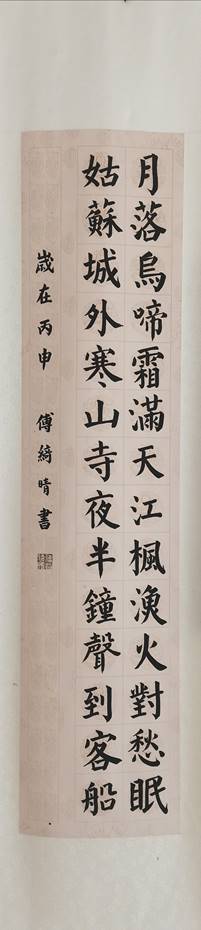 月落烏啼霜滿天江楓漁火對愁眠
姑蘇城外寒山寺夜半鐘聲到客船
歲在丙申 傅綺晴書